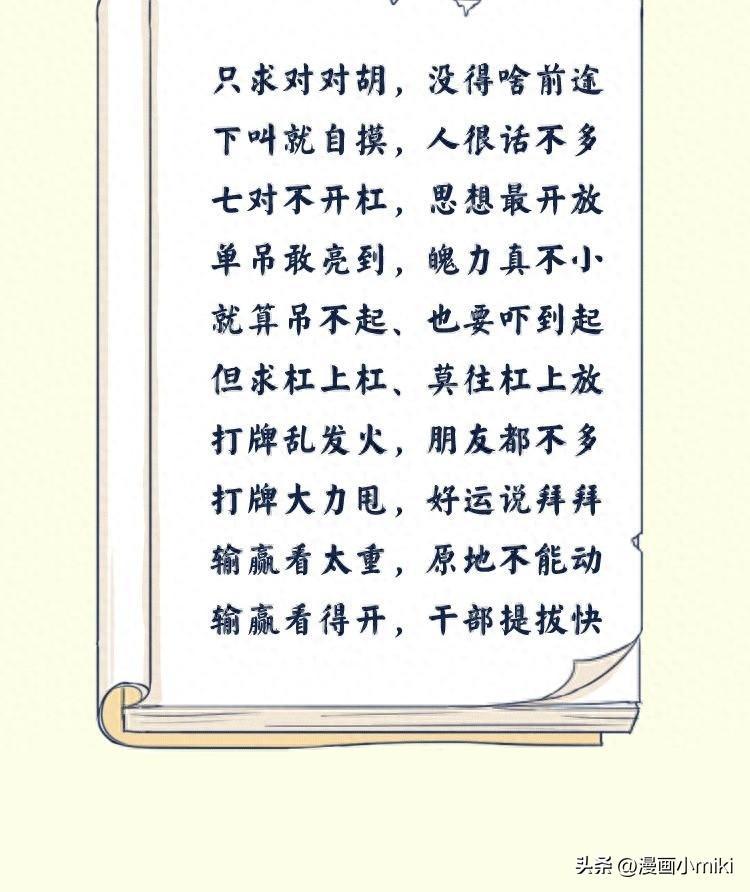 只求对对胡，没得啥前途
下叫就自摸，人很话不多
七对不开杠，思想最开放
单吊敢亮到，魄力真不小
就算吊不起、也要吓到起
但求杠上杠、莫往杠上放
打牌乱发火，朋友都不多
打牌大力甩，好运说拜拜
输赢看太重，原地不能动
输赢看得开，干部提拔快
头条 @漫画小miki